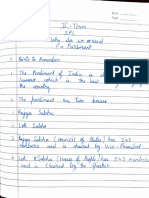 II - Term
SPL
Why do we need
a Parliment
Points to Remember
The Parliment of India is
which is the
the country
The parliment has two houses
Rajya Sabha
Lok Sabha
Rajya Sabha (council of States) has 245
members and is chaired by Vice-President
Lok Sabha (House of
and is chaired by the speaker